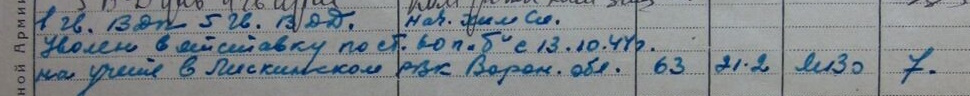 1 гв. Вдп 5 гв. ВДД. нач. химсл.
Уволен в отставку по ст. 60 п. "б" с 13.10.44г.
на учете в Лискинском РВК Ворон. обл. 63 21.2 7.
ной Арми